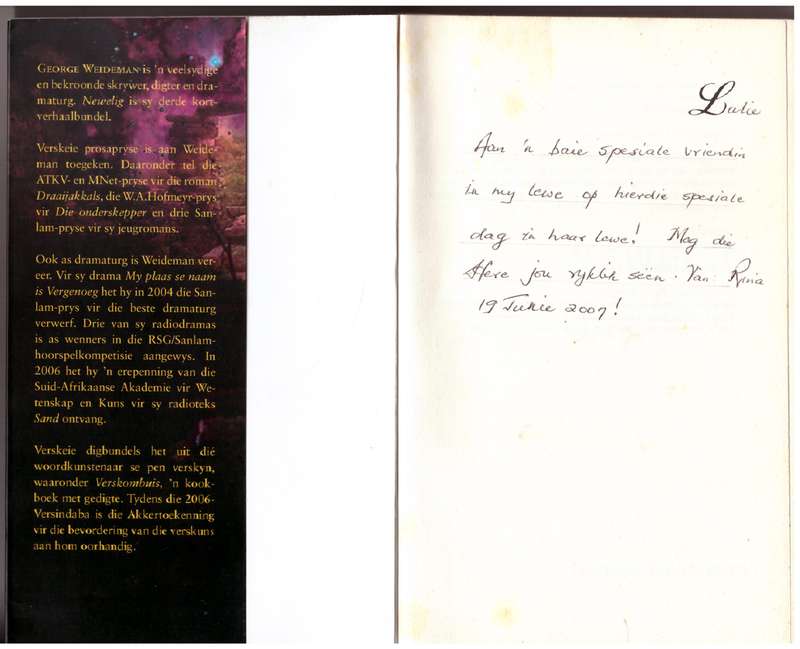 GEORGE WEIDEMAN is 'n veelsydige
en bekroonde skrywer, digter en dra-
maturg. Newelig is sy derde kort-
verhaalbundel.
Verskeie prosapryse is aan Weide-
man toegeken. Daaronder tel die
ATKV- en MNet-pryse vir die roman
Draaijakkals, die W.A.Hofmeyr-prys
vir Die onderskepper en drie San-
lam-pryse vir sy jeugromans.
Ook as dramaturg is Weideman ver-
eer. Vir sy drama My plaas se naam
is Vergenoeg het hy in 2004 die San-
lam-prys vir die beste dramaturg
verwerf. Drie van sy radiodramas
is as wenners in die RSG/Sanlam-
hoorspelkompetisie aangewys. In
2006 het hy 'n erepenning van die
Suid-Afrikaanse Akademie vir We-
tenskap en Kuns vir sy radioteks
Sand ontvang.
Verskeie digbundels het uit dié
woordkunstenaar se pen verskyn,
waaronder Verskombuis, 'n kook-
boek met gedigte. Tydens die 2006-
Versindaba is die Akkertoekenning
vir die bevordering van die verskuns
aan hom oorhandig.
Aan 'n baie spesiale vriendin
in my lewe op hierdie spesiale
dag in haar lewe! Mag die
Here jou ryklik seën. Van Rina
19 Junie 2007!